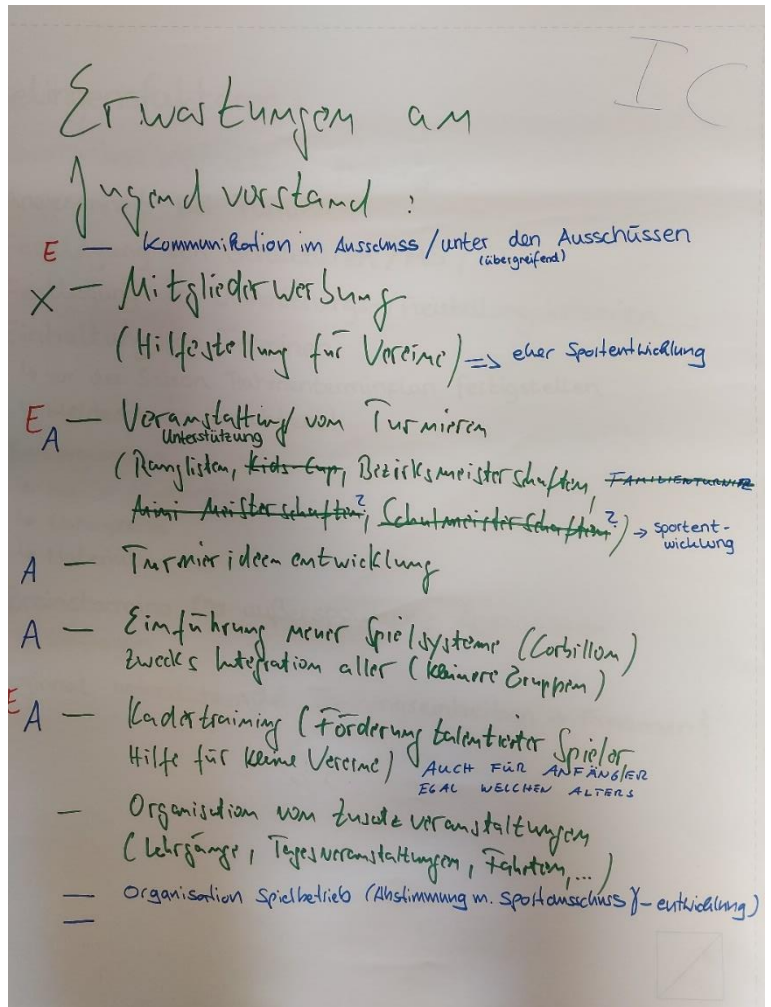 I C
Erwartungen an
Jugendvorstand :
E — Kommunikation im Ausschuss / unter den Ausschüssen
(übergreifend)
X — Mitgliederwerbung
(Hilfestellung für Vereine) => eher Sportentwicklung
E A — Veranstaltung von Turnieren
Unterstützung
(Ranglisten, Kids-Cup, Bezirksmeisterschaften, FAMILIENTURNIER
Mini-Meisterschaften?, Schulmeisterschaften?) → sportent-
wicklung
A — Turnierideenentwicklung
A — Einführung neuer Spielsysteme (Corbillon)
zwecks Integration aller (kleinere Gruppen)
E A — Kadertraining (Förderung talentierter Spieler
Hilfe für kleine Vereine) AUCH FÜR ANFÄNGER
EGAL WELCHEN ALTERS
— Organisation von Zusatzveranstaltungen
(Lehrgänge, Tagesveranstaltungen, Fahrten,...)
— Organisation Spielbetrieb (Abstimmung m. Sportausschuss / -entwicklung)
—